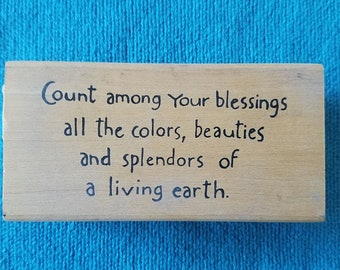 Count among Your blessings
all the colors, beauties
and splendors of
a living earth.